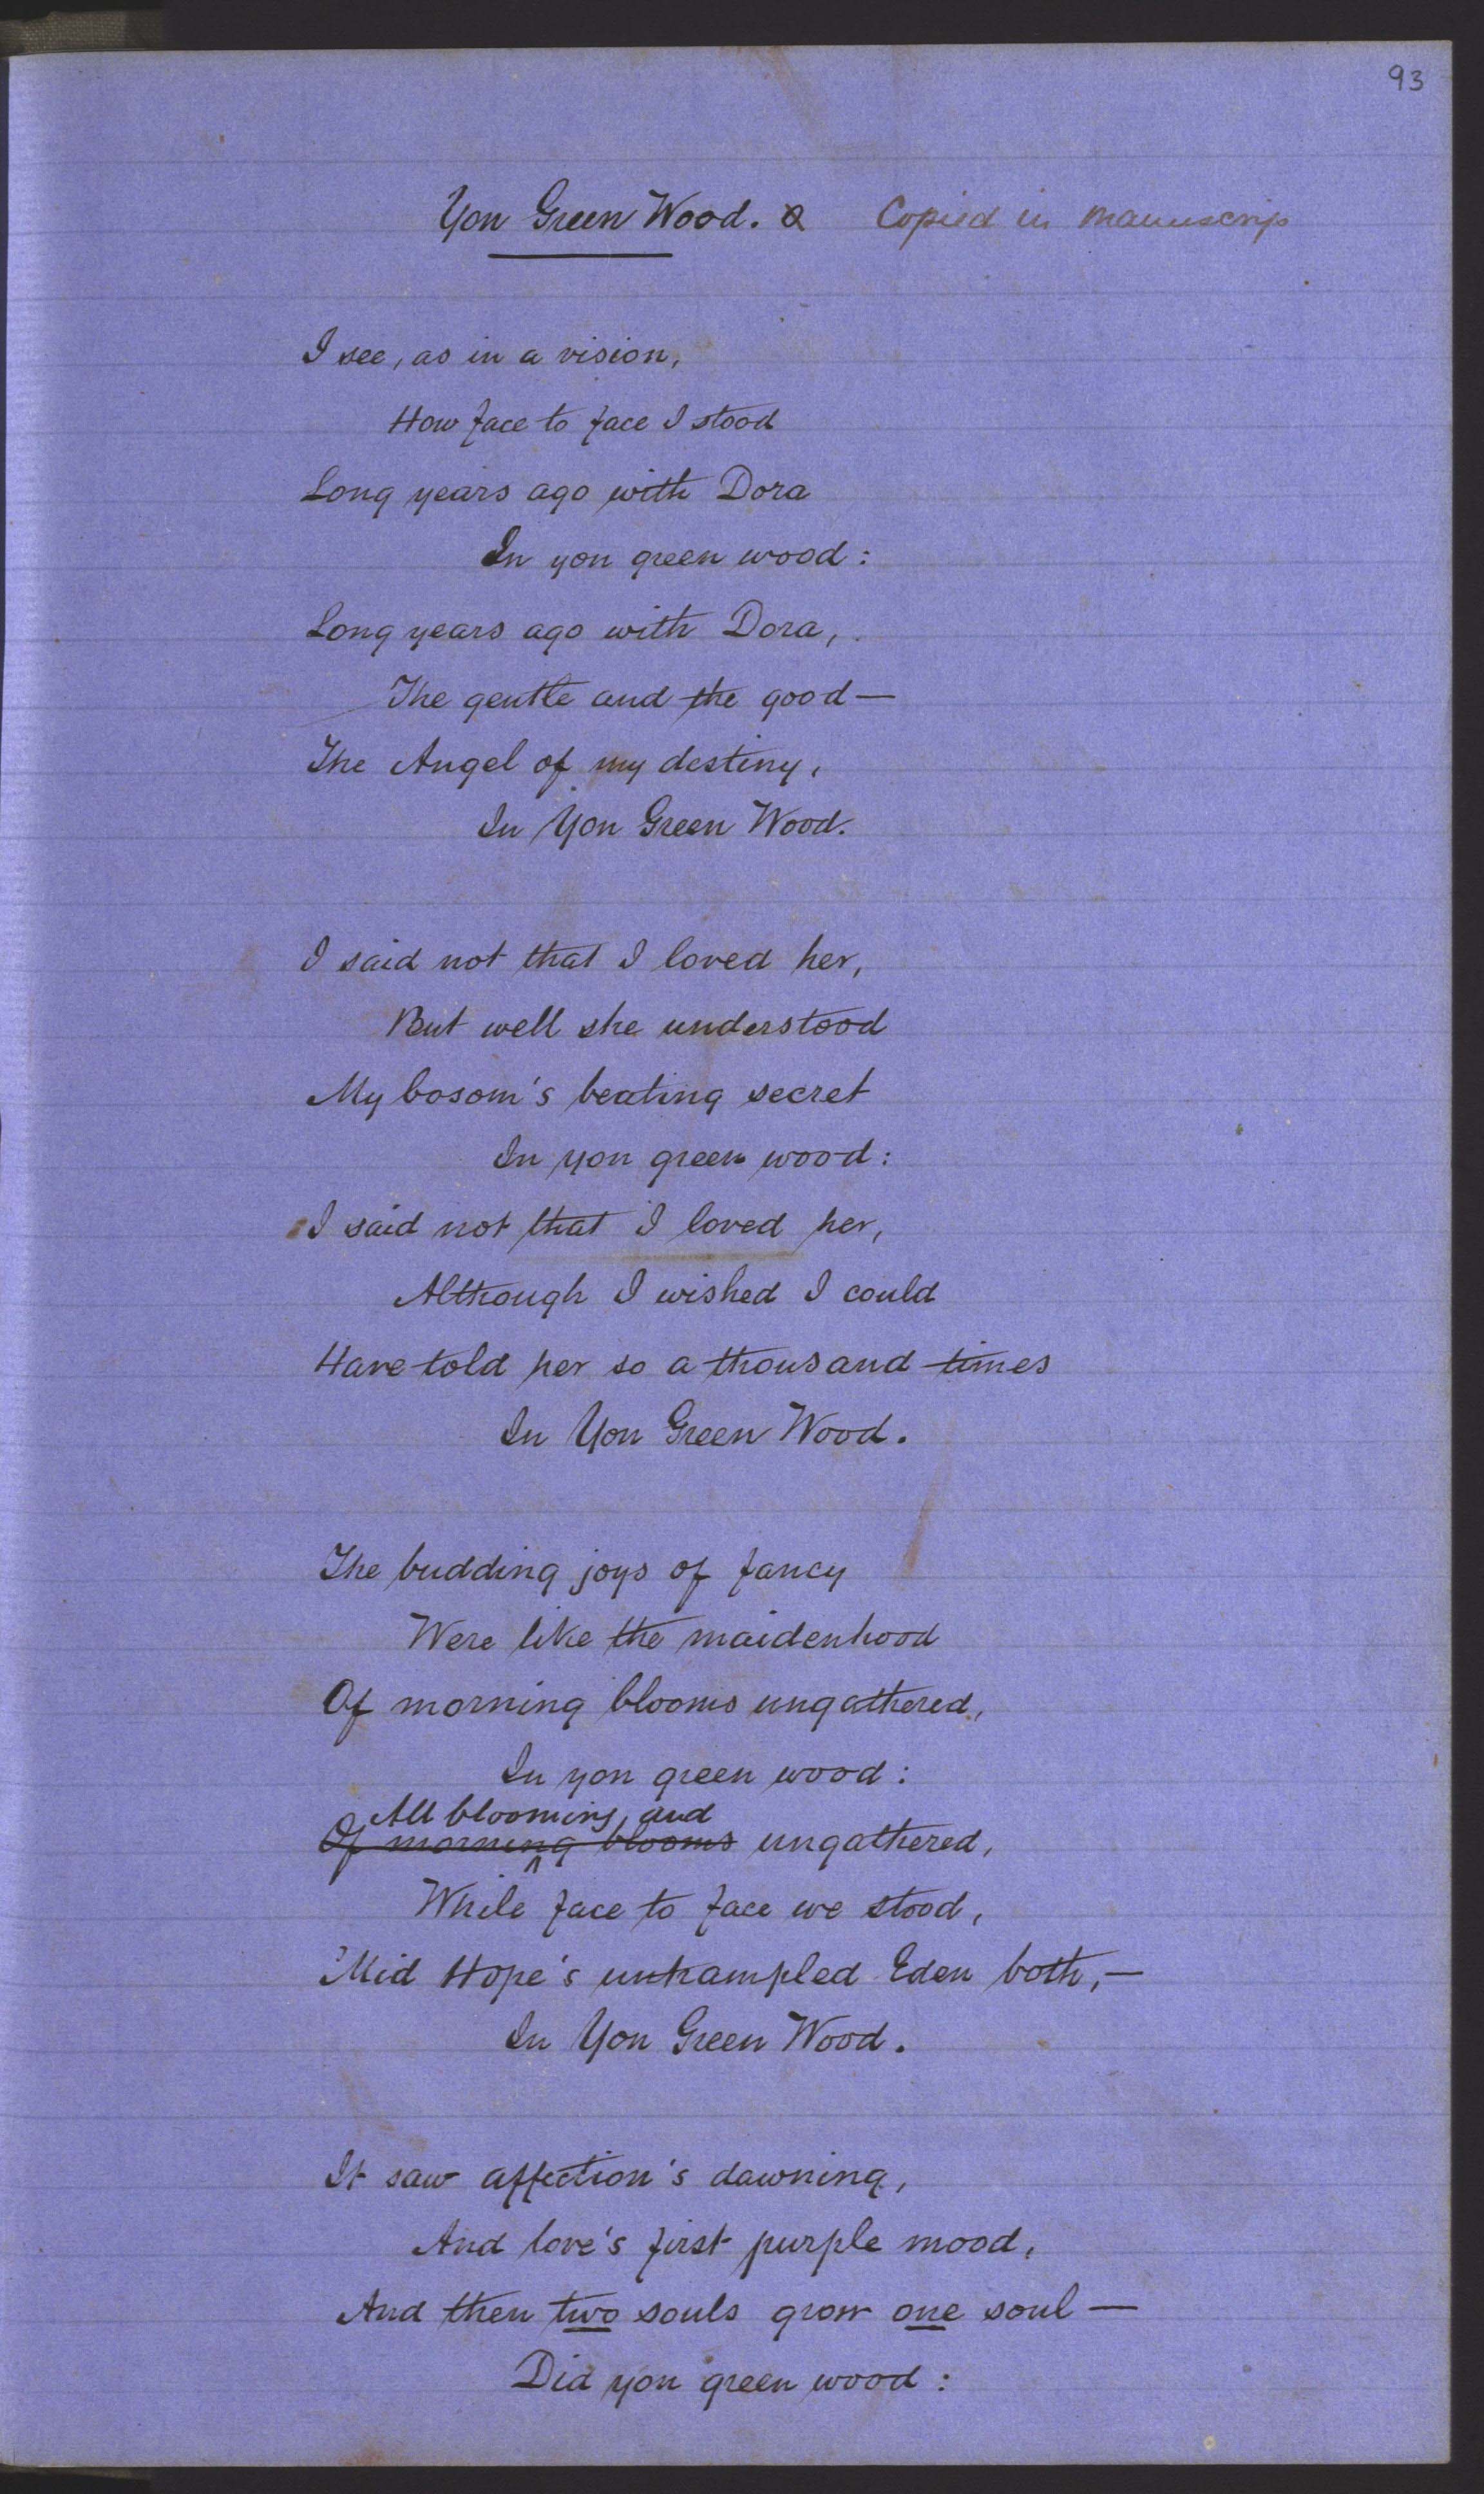 93
Yon Green Wood. Copied in manuscrip
I see, as in a vision,
How face to face I stood
Long years ago with Dora
In yon green wood:
Long years ago with Dora,
The gentle and the good—
The Angel of my destiny,
In Yon Green Wood.
I said not that I loved her,
But well she understood
My bosom's beating secret
In yon green wood:
I said not that I loved her,
Although I wished I could
Have told her so a thousand times
In Yon Green Wood.
The budding joys of fancy
Were like the maidenhood
Of morning blooms ungathered,
In yon green wood:
All blooming, and
Of morning blooms ungathered,
While face to face we stood,
'Mid Hope's untrampled Eden both,—
In Yon Green Wood.
It saw affection's dawning,
And love's first purple mood,
And then two souls grow one soul—
Did yon green wood: